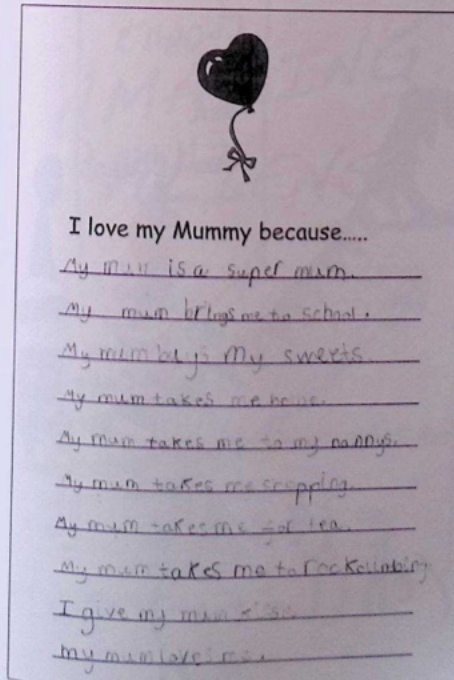 I love my Mummy because.....
My mum is a super mum.
My mum brings me to school.
My mum buys my sweets.
My mum takes me home.
My mum takes me to my nannys.
My mum takes me shopping.
My mum takes me for tea.
My mum takes me to
I give my mum
my mum loves me.